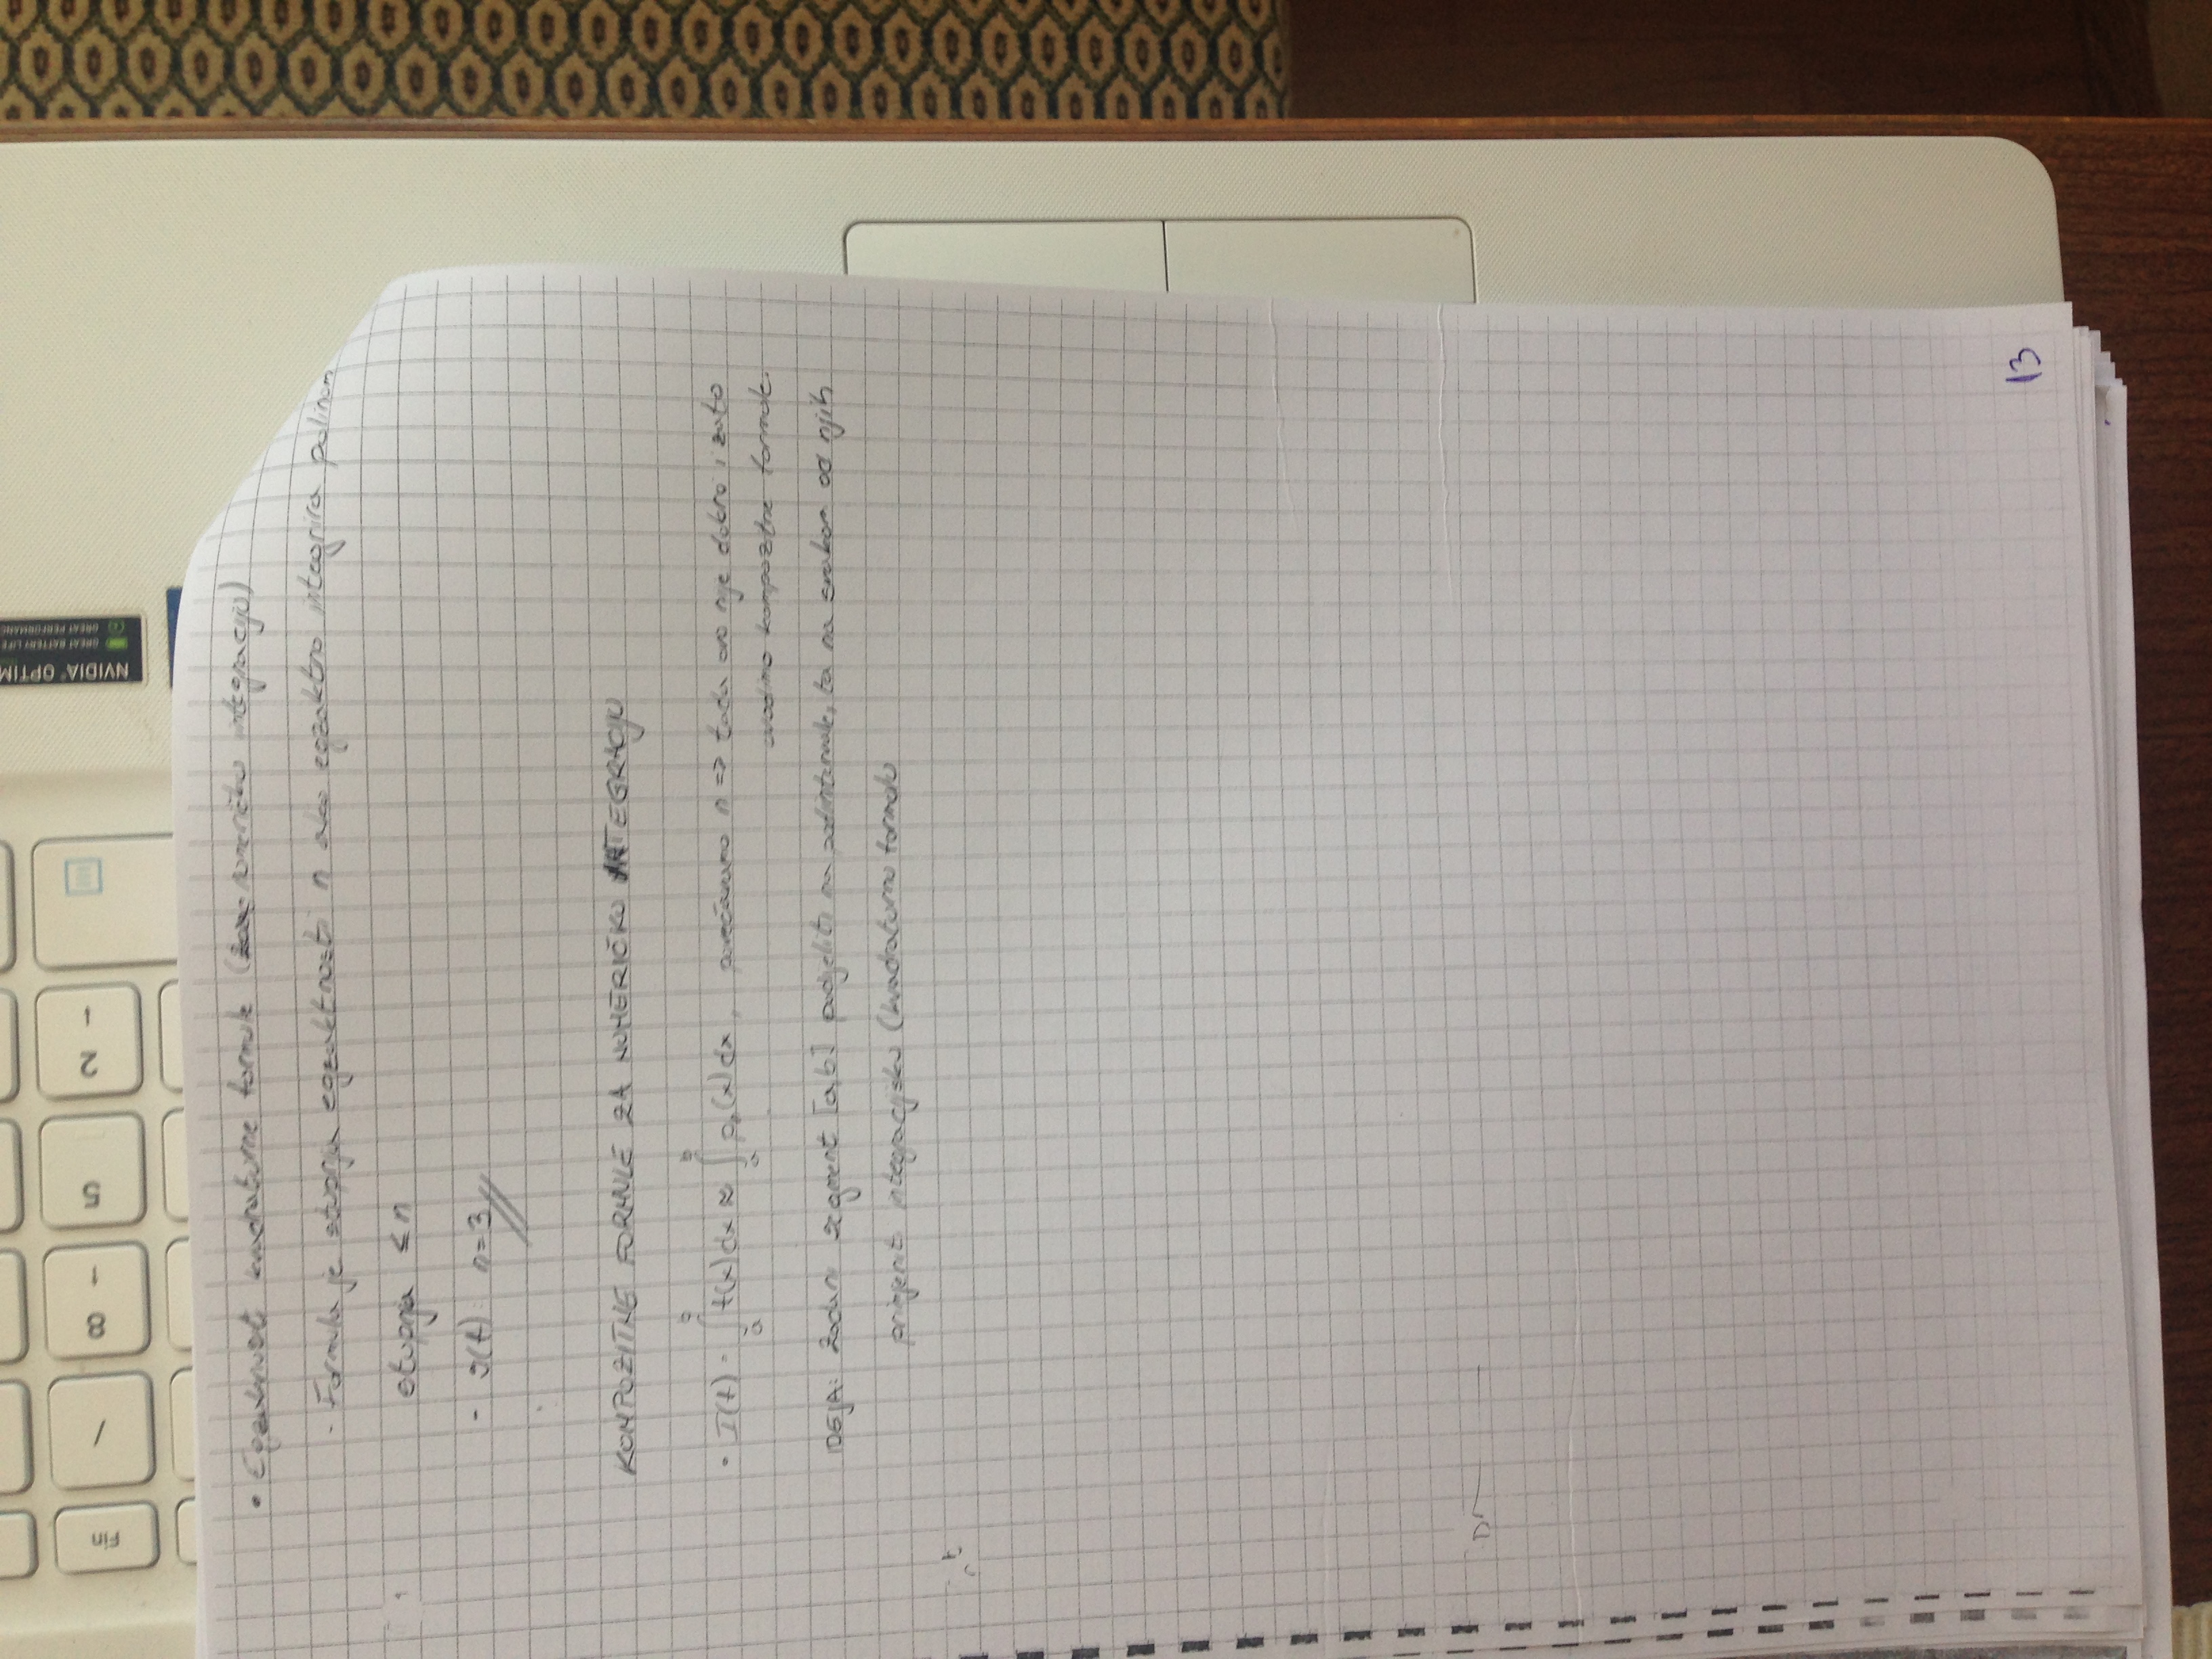 Fin
/
8
↑
5
2
↓
NVIDIA® OPTIM
GREAT BATTERY LIFE
GREAT PERFORMANC
• Egzaktnost kvadraturne formule ( numeričku integraciju)
- Formula je stupnja egzaktnosti n ako egzaktno integrira polinom
stupnja ≤ n
- n=3
KOMPOZITNE FORMULE ZA NUMERIČKU INTEGRACIJU
• I(f) = ∫ₐᵇ f(x)dx ≈ ∫ₐᵇ pₙ(x)dx, povećavamo n => tada ovo nije dobro i zato
uvodimo kompozitne formule.
IDEJA: Zadani segment [a,b] podjeliti na podintervale, ta na svakom od njih
primjenit integracijsku (kvadraturnu formulu
13